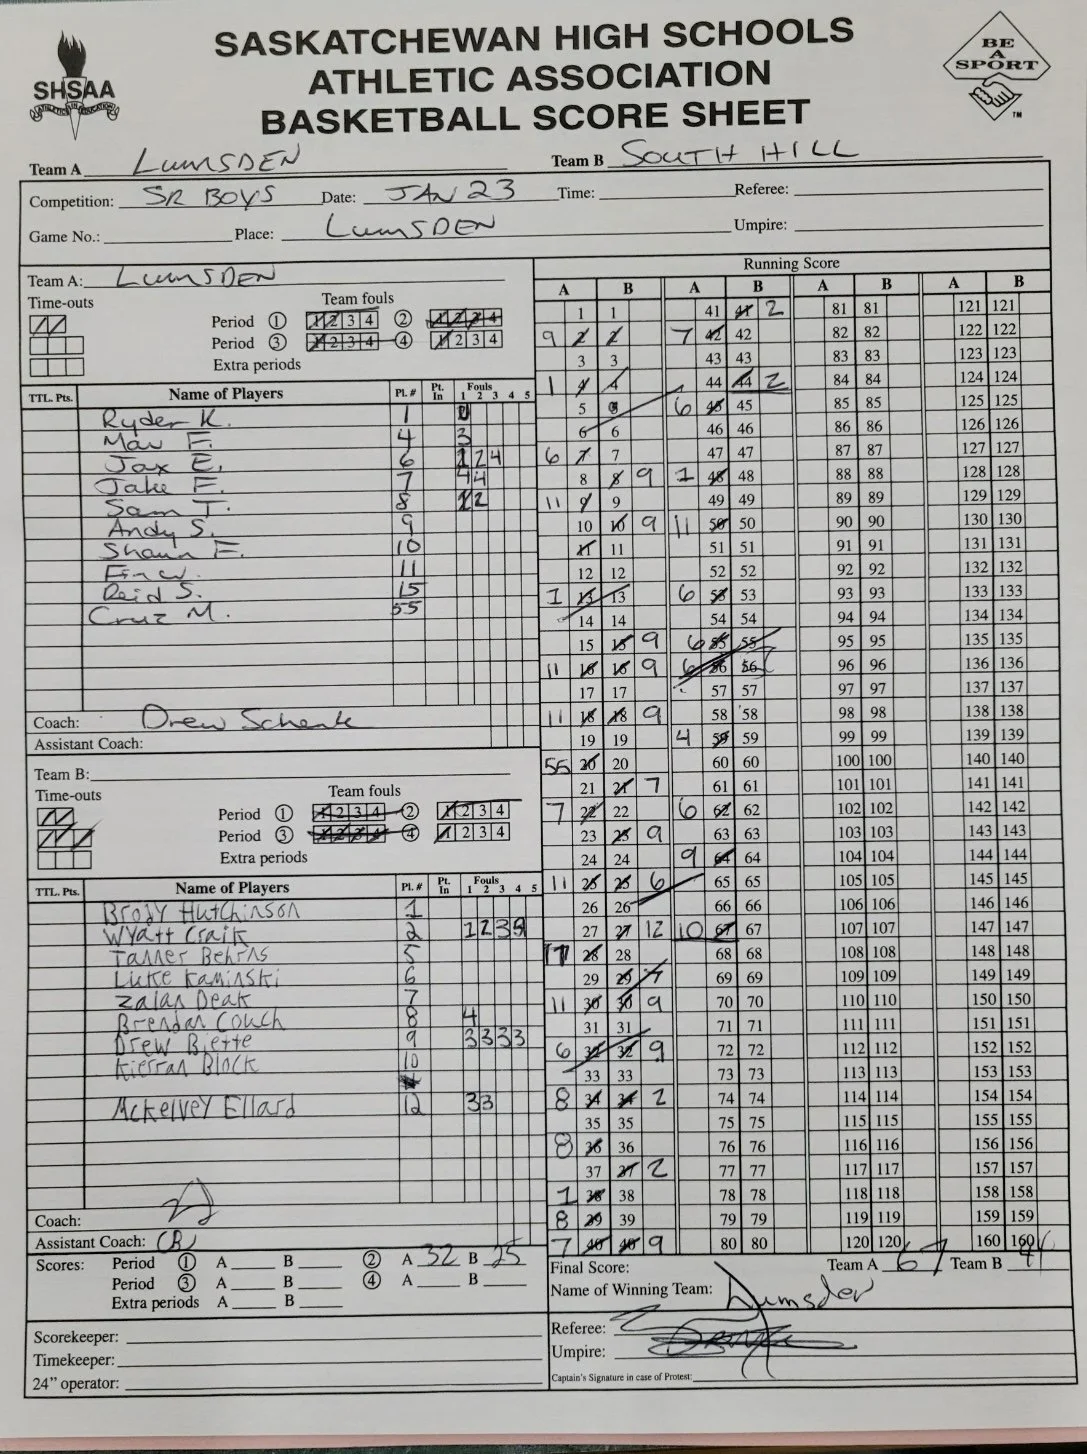 SHSAA
ATHLETICS IN EDUCATION
SASKATCHEWAN HIGH SCHOOLS
ATHLETIC ASSOCIATION
BASKETBALL SCORE SHEET
BE
A
SPORT
TM
Team A LUMSDEN Team B SOUTH HILL
Competition: SR BOYS Date: JAN 23 Time: Referee:
Game No.: Place: LUMSDEN Umpire:
Team A: LUMSDEN
Time-outs Team fouls
Period ① 1 2 3 4 ② 1 2 3 4
Period ③ 1 2 3 4 ④ 1 2 3 4
Extra periods
TTL. Pts. Name of Players Pl. # Pt. In Fouls 1 2 3 4 5
Ryder K. 1
Mav F. 4 3
Jax E. 6 1 2 4
Jake F. 7 4 4
Sam T. 8 1 2
Andy S. 9
Shaun F. 10
11
Reid S. 15
Cruz M. 55
Coach: Drew Schenk
Assistant Coach:
Team B:
Time-outs Team fouls
Period ① 1 2 3 4 ② 1 2 3 4
Period ③ 1 2 3 4 ④ 1 2 3 4
Extra periods
TTL. Pts. Name of Players Pl. # Pt. In Fouls 1 2 3 4 5
Brody Hutchinson 1
Wyatt Craik 2 1 2 3
Tanner Behrns 5
Luke Kaminski 6
Zalan Deak 7
Brendan Couch 8 4
Drew Biette 9 3 3 3 3
Kierran Block 10
Mckelvey Ellard 12 3 3
Coach:
Assistant Coach:
Scores: Period ① A B ② A 32 B 25
Period ③ A B ④ A B
Extra periods A B
Scorekeeper:
Timekeeper:
24" operator:
Running Score
A B A B A B A B
1 1 41 41 2 81 81 121 121
9 2 2 7 42 42 82 82 122 122
3 3 43 43 83 83 123 123
1 4 4 44 44 2 84 84 124 124
5 5 6 45 45 85 85 125 125
6 6 46 46 86 86 126 126
6 7 7 47 47 87 87 127 127
8 8 9 1 48 48 88 88 128 128
11 9 9 49 49 89 89 129 129
10 10 9 11 50 50 90 90 130 130
11 11 51 51 91 91 131 131
12 12 52 52 92 92 132 132
1 13 13 6 53 53 93 93 133 133
14 14 54 54 94 94 134 134
15 15 9 6 55 55 95 95 135 135
11 16 16 9 6 56 56 96 96 136 136
17 17 57 57 97 97 137 137
11 18 18 9 58 58 98 98 138 138
19 19 4 59 59 99 99 139 139
55 20 20 60 60 100 100 140 140
21 21 7 61 61 101 101 141 141
7 22 22 6 62 62 102 102 142 142
23 23 9 63 63 103 103 143 143
24 24 9 64 64 104 104 144 144
11 25 25 6 65 65 105 105 145 145
26 26 66 66 106 106 146 146
27 27 12 10 67 67 107 107 147 147
28 28 68 68 108 108 148 148
29 29 7 69 69 109 109 149 149
11 30 30 9 70 70 110 110 150 150
31 31 71 71 111 111 151 151
6 32 32 9 72 72 112 112 152 152
33 33 73 73 113 113 153 153
8 34 34 2 74 74 114 114 154 154
35 35 75 75 115 115 155 155
8 36 36 76 76 116 116 156 156
37 37 2 77 77 117 117 157 157
1 38 38 78 78 118 118 158 158
8 39 39 79 79 119 119 159 159
7 40 40 9 80 80 120 120 160 160
Final Score: Team A 67 Team B 44
Name of Winning Team: Lumsden
Referee:
Umpire:
Captain's Signature in case of Protest: